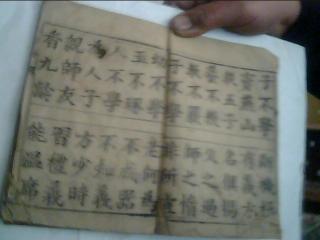 子不學 斷機杼
竇燕山 有義方
教五子 名俱揚
養不教 父之過
教不嚴 師之惰
子不學 所宜
幼不學 老何為
玉不琢 不成器
人不學 不知義
為人子 方少時
親師友 習禮義
香九齡 能溫席